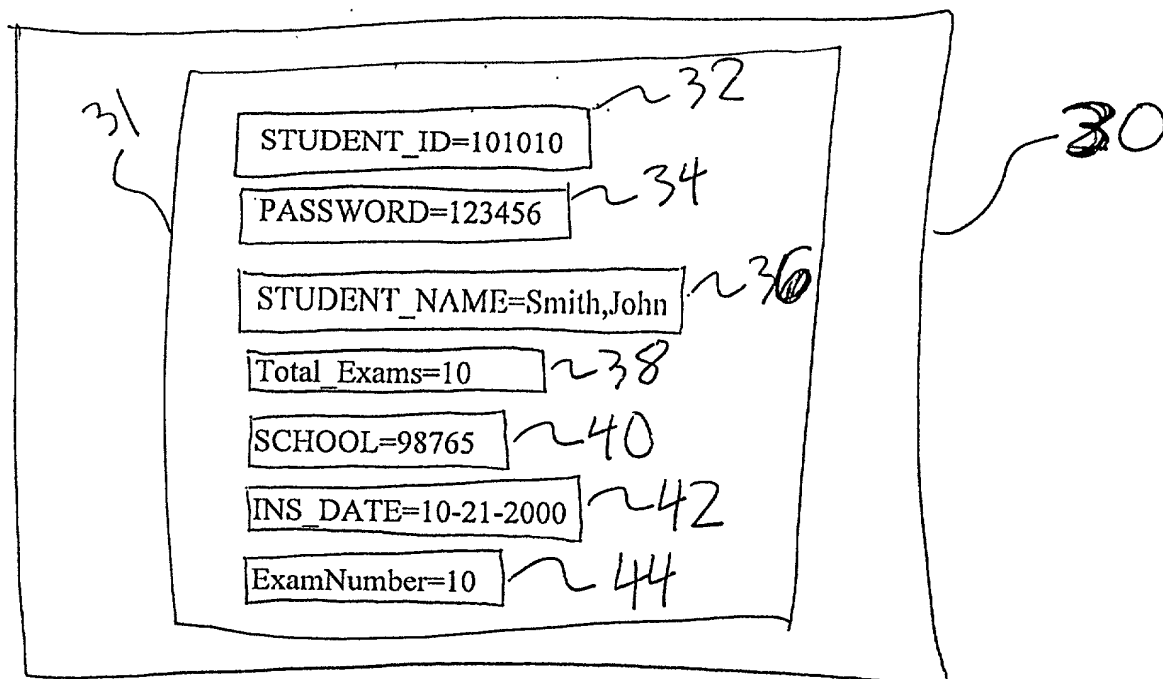 32
31
30
STUDENT_ID=101010
34
PASSWORD=123456
36
STUDENT_NAME=Smith,John
Total_Exams=10 38
SCHOOL=98765 40
INS_DATE=10-21-2000 42
ExamNumber=10 44